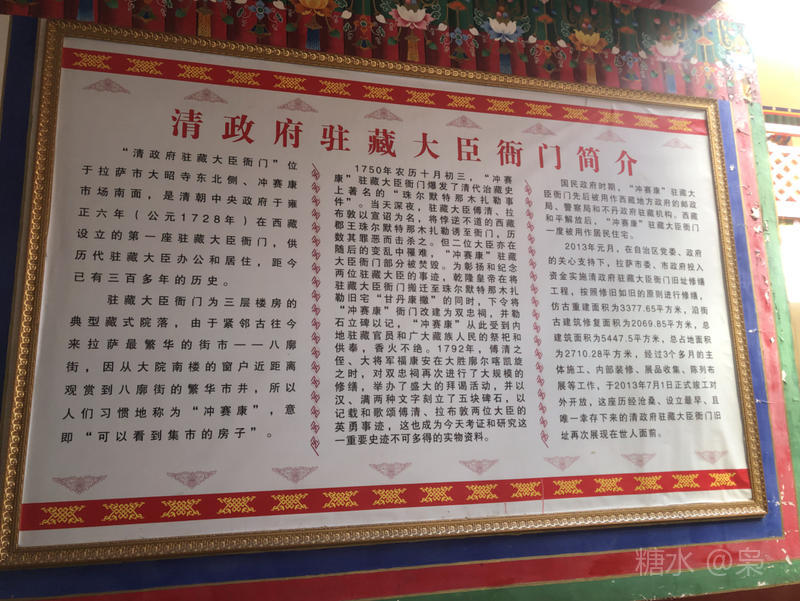 清政府驻藏大臣衙门简介
“清政府驻藏大臣衙门”位
于拉萨市大昭寺东北侧、冲赛康
市场南面，是清朝中央政府于雍
正六年（公元1728年）在西藏
设立的第一座驻藏大臣衙门，供
历代驻藏大臣办公和居住，距今
已有三百多年的历史。
驻藏大臣衙门为三层楼房的
典型藏式院落，由于紧邻古往今
来拉萨最繁华的街市——八廓
街，因从大院南楼的窗户近距离
观赏到八廓街的繁华市井，所以
人们习惯地称为“冲赛康”，意
即“可以看到集市的房子”。
1750年农历十月初三，“冲赛
康”驻藏大臣衙门爆发了清代治藏史
上著名的“珠尔默特那木扎勒事
件”。当天深夜，驻藏大臣傅清、拉
布敦以宣诏为名，将悖逆不道的西藏
郡王珠尔默特那木扎勒诱至衙门，历
数其罪恶而击杀之。但二位大臣亦在
随后的变乱中罹难，“冲赛康”驻藏
大臣衙门部分被焚毁。为彰扬和纪念
两位驻藏大臣的事迹，乾隆皇帝在将
驻藏大臣衙门搬迁至珠尔默特那木扎
勒旧宅“甘丹康撤”的同时，下令将
“冲赛康”衙门改建为双忠祠，并勒
石立碑以记，“冲赛康”从此受到内
地驻藏官员和广大藏族人民的祭祀和
供奉，香火不绝。1792年，傅清之
侄、大将军福康安在大胜廓尔喀凯旋
之时，对双忠祠再次进行了大规模的
修缮，举办了盛大的拜谒活动，并以
汉、满两种文字刻立了五块碑石，以
记载和歌颂傅清、拉布敦两位大臣的
英勇事迹，这也成为今天考证和研究这
一重要史迹不可多得的实物资料。
国民政府时期，“冲赛康”驻藏大
臣衙门先后被用作西藏地方政府的邮政
局、警察局和不丹政府驻藏机构。西藏
和平解放后，“冲赛康”驻藏大臣衙门
一度被用作居民住宅。
2013年元月，在自治区党委、政府
的关心支持下，拉萨市委、市政府投入
资金实施清政府驻藏大臣衙门旧址修缮
工程，按照修旧如旧的原则进行修缮，
仿古重建面积3377.65平方米，沿街
古建筑修复面积2069.85平方米，总
建筑面积为5447.5平方米，总占地面积
为2710.28平方米，经过3个多月的主
体施工、内部装修、展品收集、陈列布
展等工作，于2013年7月1日正式竣工对
外开放，这座历经沧桑、设立最早、且
唯一幸存下来的清政府驻藏大臣衙门旧
址再次展现在世人面前。
糖水 @枭